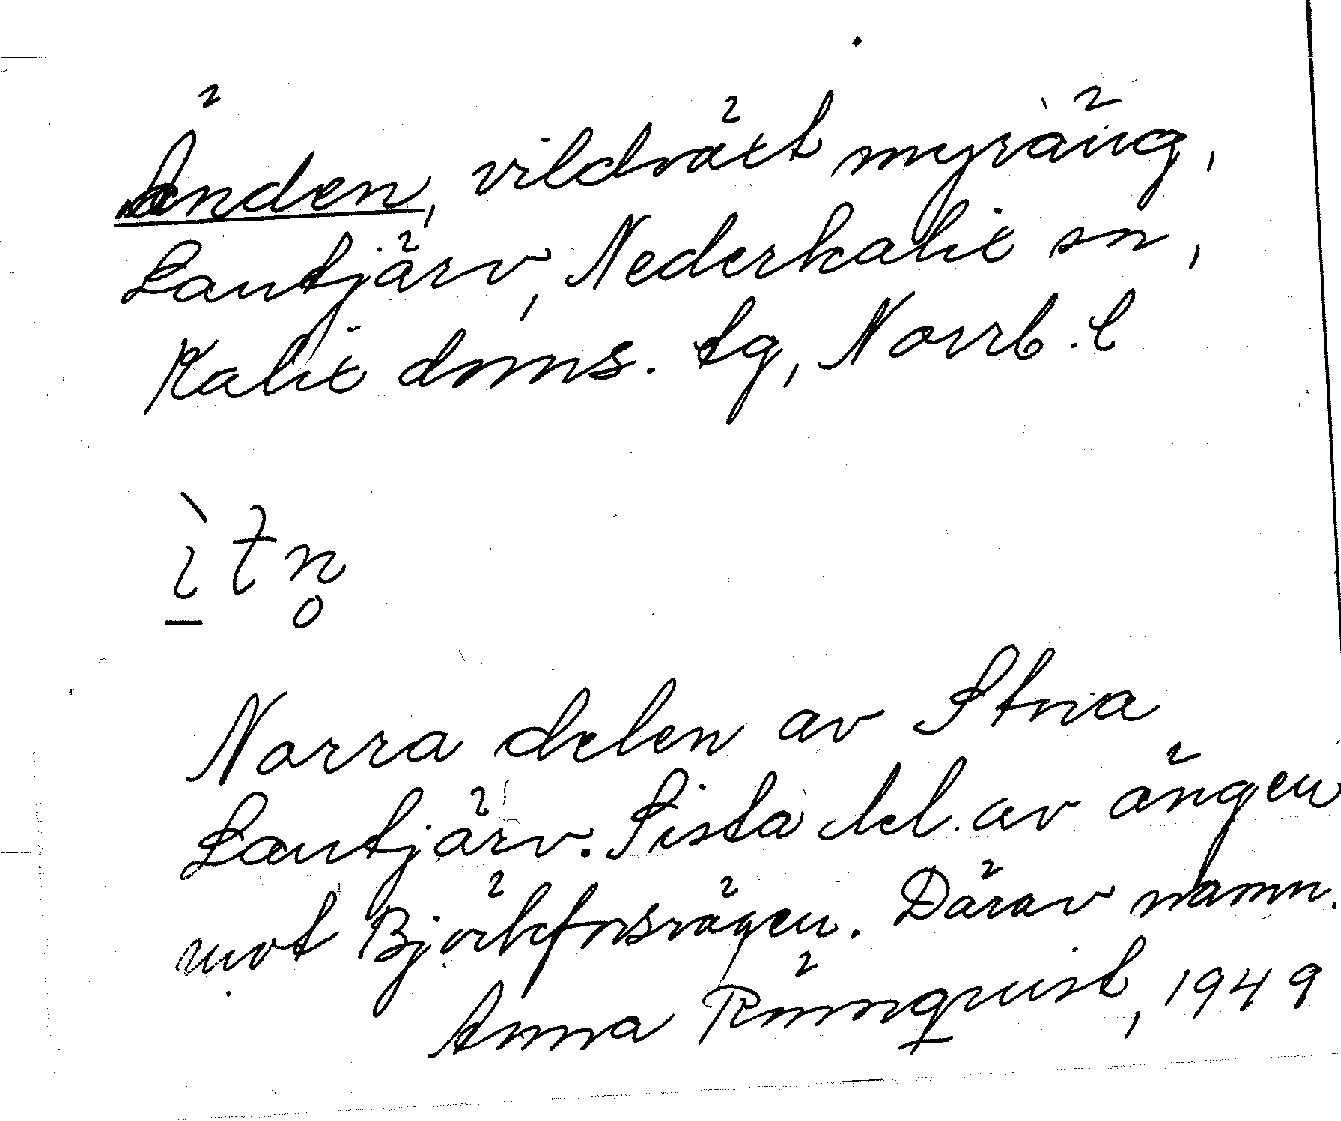 Änden, vildväxt myräng,
Lantjärv, Nederkalix sn,
Kalix doms. tg, Norrb. l
ìtn̥
Norra delen av Stora
Lantjärv. Sista del av ängen
mot Björkforsvägen. Därav namn.
Anna Rönnquist, 1949